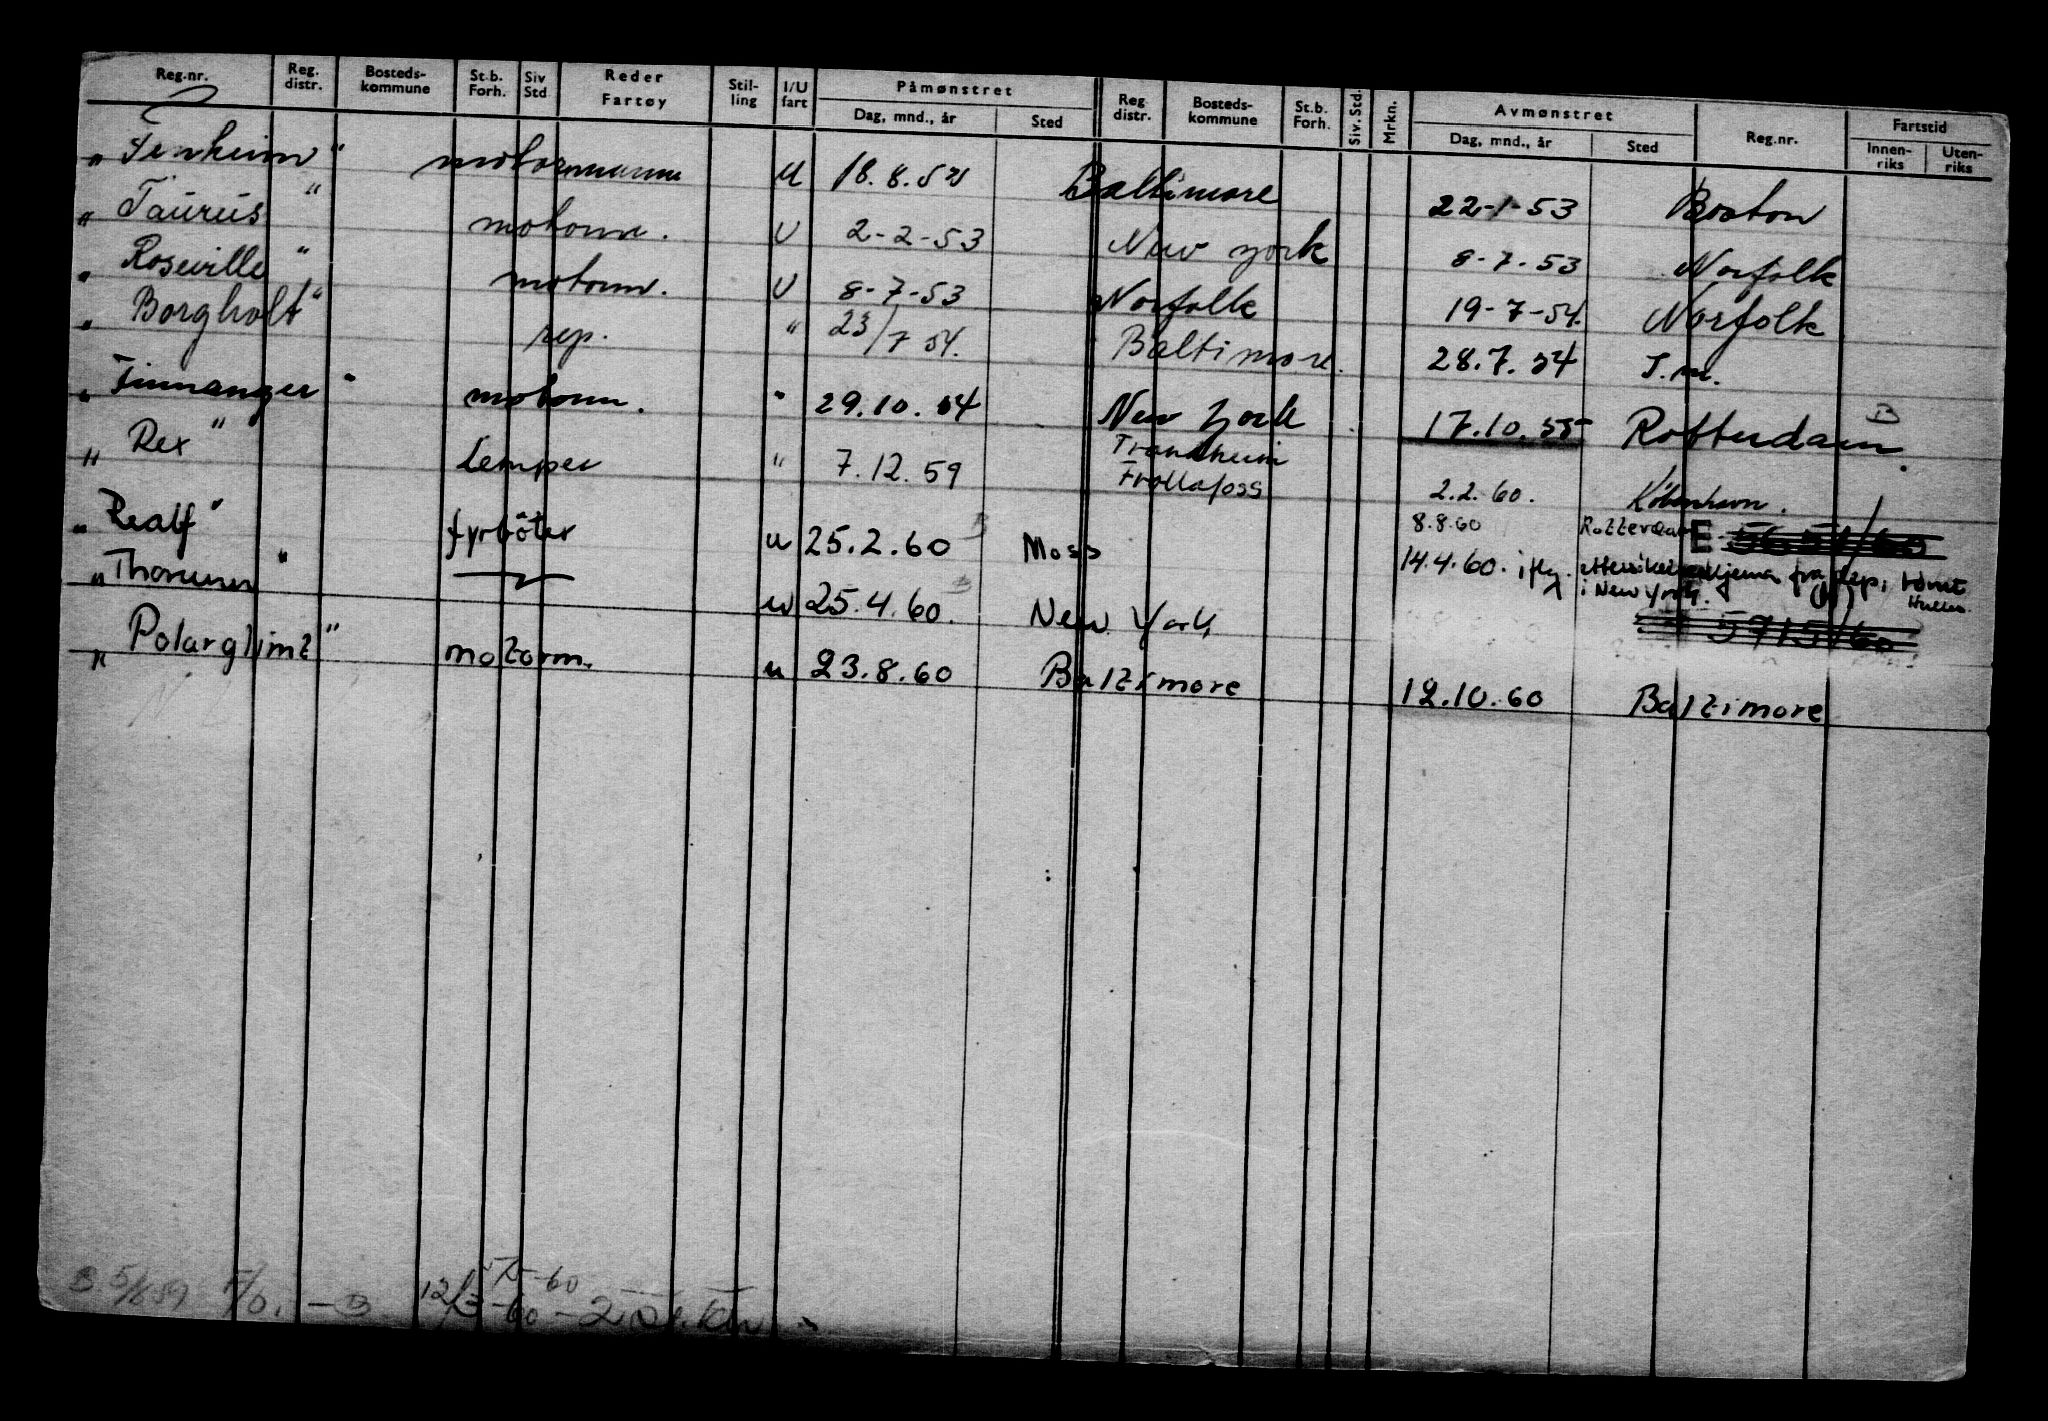 Reg.nr. Reg. distr. Bosteds-kommune St.b. Forh. Siv Std Reder Fartøy Stil-ling I/U fart Påmønstret Dag, mnd., år Sted Reg distr. Bosteds-kommune St.b. Forh. Siv. Std. Mrkn. Avmønstret Dag, mnd., år Sted Reg.nr. Fartstid Innen-riks Uten-riks
„ Fenheim " motormann U 18.8.52 Baltimore 22-1-53 Boston
„ Taurus " motorm. U 2-2-53 New York 8-7-53 Norfolk
„ Roseville " motorm. U 8-7-53 Norfolk 19-7-54. Norfolk
„ Borgholt " rep. " 23/7 54. Baltimore. 28.7.54 T.m.
„ Finnanger " motorm. " 29.10.54 New York 17.10.55 Rotterdam. B
„ Rex " Lemper " 7.12.59 Trondheim Frollafoss 2.2.60. København.
„ Realf " fyrbøter u 25.2.60 Moss 8.8.60 Rotterdam E
14.4.60. iflg. fra rep. rømt
i New York.
„ Thorunn " u 25.4.60. New York 5715/60
„ Polarglimt " motorm. u 23.8.60 Baltimore 12.10.60 Baltimore
B. F/O. - B. 12/3-60 -60 - 2